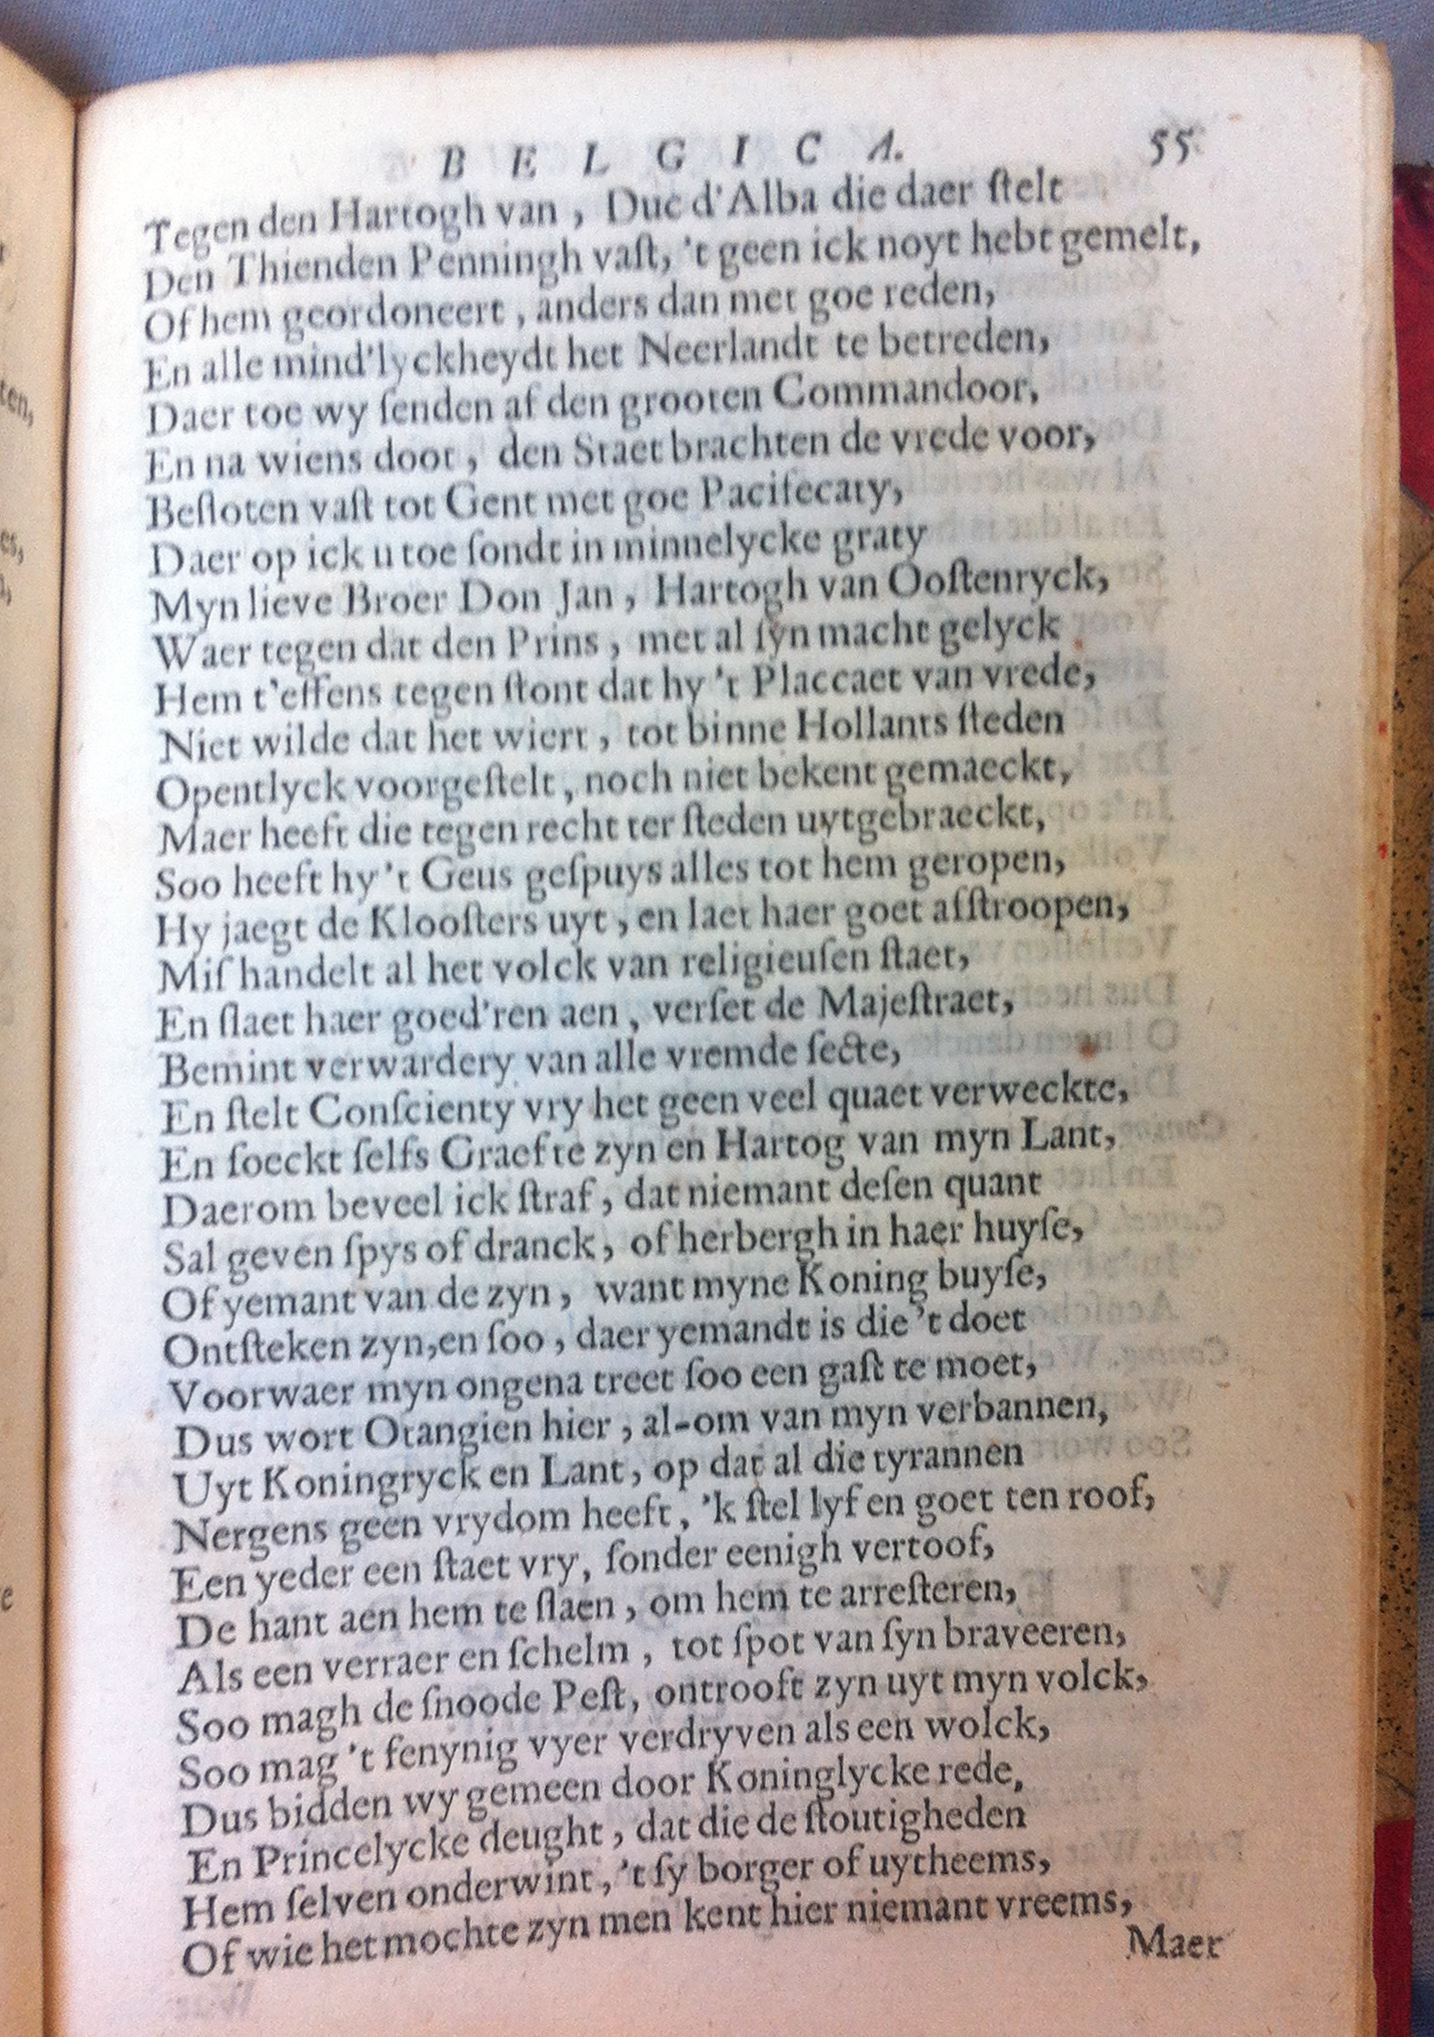 BELGICA. 55
Tegen den Hartogh van, Duc d'Alba die daer ſtelt
Den Thienden Penningh vaſt, 't geen ick noyt hebt gemelt,
Of hem geordoneert, anders dan met goe reden,
En alle mind'lyckheydt het Neerlandt te betreden,
Daer toe wy ſenden af den grooten Commandoor,
En na wiens doot, den Staet brachten de vrede voor,
Beſloten vaſt tot Gent met goe Pacifecaty,
Daer op ick u toe ſondt in minnelycke graty
Myn lieve Broer Don Jan, Hartogh van Ooſtenryck,
Waer tegen dat den Prins, met al ſyn macht gelyck
Hem t'effens tegen ſtont dat hy 't Placcaet van vrede,
Niet wilde dat het wiert, tot binne Hollants ſteden
Opentlyck voorgeſtelt, noch niet bekent gemaeckt,
Maer heeft die tegen recht ter ſteden uytgebraeckt,
Soo heeft hy 't Geus geſpuys alles tot hem geropen,
Hy jaegt de Klooſters uyt, en laet haer goet afſtroopen,
Miſhandelt al het volck van religieuſen ſtaet,
En ſlaet haer goed'ren aen, verſet de Majeſtraet,
Bemint verwardery van alle vremde ſecte,
En ſtelt Conſcienty vry het geen veel quaet verweckte,
En ſoeckt ſelfs Graef te zyn en Hartog van myn Lant,
Daerom beveel ick ſtraf, dat niemant deſen quant
Sal geven ſpys of dranck, of herbergh in haer huyſe,
Of yemant van de zyn, want myne Koning buyſe,
Ontſteken zyn, en ſoo, daer yemandt is die 't doet
Voorwaer myn ongena treet ſoo een gaſt te moet,
Dus wort Orangien hier, al-om van myn verbannen,
Uyt Koningryck en Lant, op dat al die tyrannen
Nergens geen vrydom heeft, 'k ſtel lyf en goet ten roof,
Een yeder een ſtaet vry, ſonder eenigh vertoof,
De hant aen hem te ſlaen, om hem te arreſteren,
Als een verraer en ſchelm, tot ſpot van ſyn braveeren,
Soo magh de ſnoode Peſt, ontrooft zyn uyt myn volck,
Soo mag 't fenynig vyer verdryven als een wolck,
Dus bidden wy gemeen door Koninglycke rede,
En Princelycke deught, dat die de ſtoutigheden
Hem ſelven onderwint, 't ſy borger of uytheems,
Of wie het mochte zyn men kent hier niemant vreems,
Maer